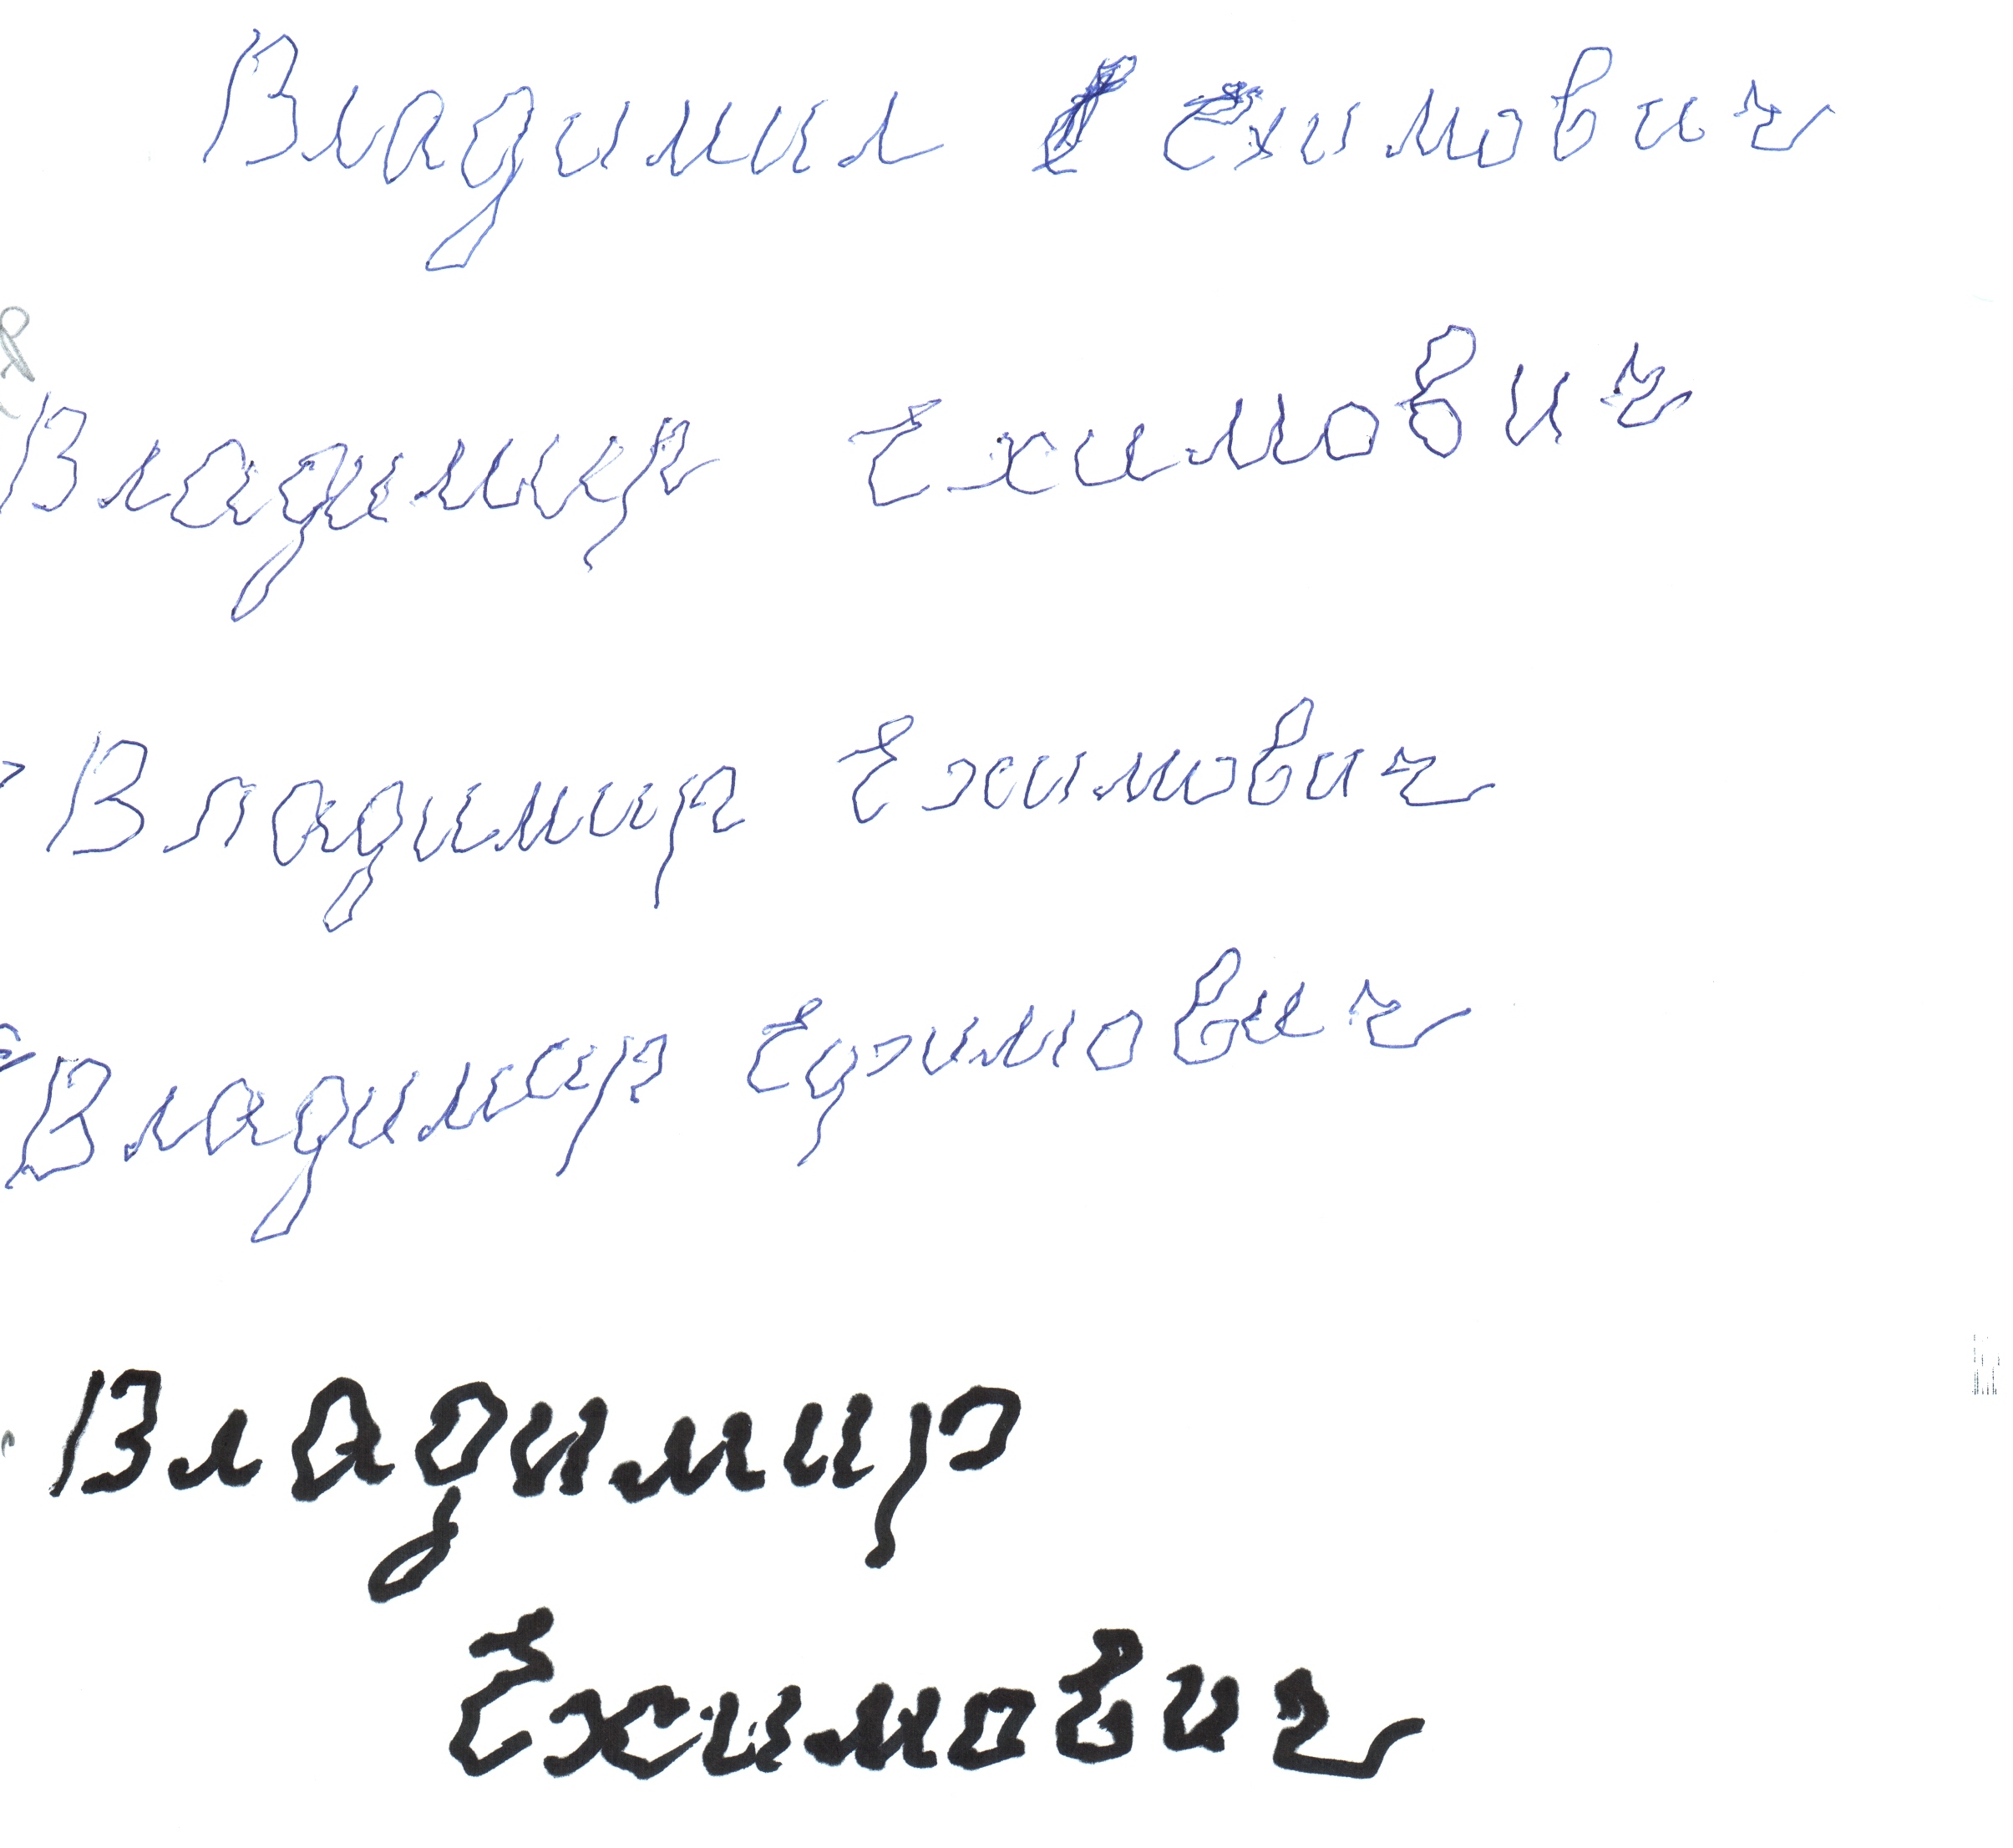 Владимил Ехимович
Владимир Ехимович
Владимир Ехимович
Владимир Ефимович
Владимир
Ехимович